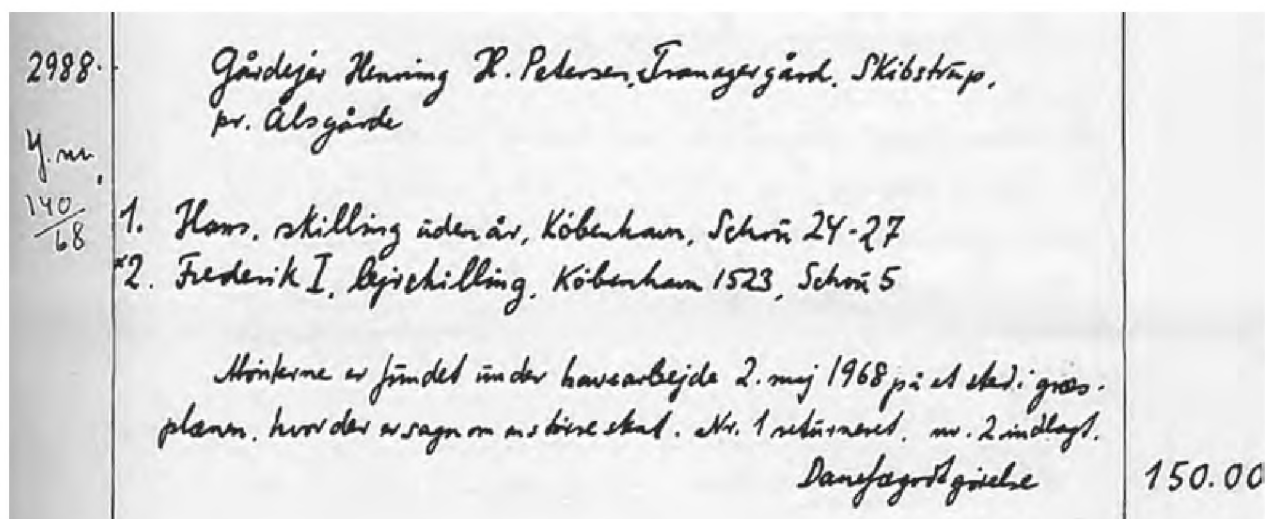 2988.
Gårdejer Henning H. Petersen, Tranagergård, Skibstrup,
pr. Ålsgårde
J. nr.
140/68
1. Hans, skilling uden år, København, Schou 24-27
*2. Frederik I, lejrskilling, København 1523, Schou 5
Mønterne er fundet under havearbejde 2. maj 1968 på et sted i græs-
plænen, hvor der er sagn om en større skat. Nr. 1 returneret, nr. 2 indlagt.
Danefægodtgørelse
150.00